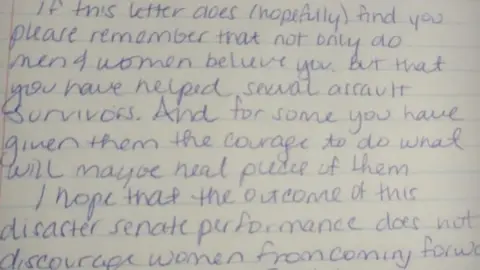 If this letter does (hopefully) find you
please remember that not only do
men & women believe you. but that
you have helped sexual assault
survivors. And for some you have
given them the courage to do what
will maybe heal piece of them
I hope that the outcome of this
disaster senate performance does not
discourage women from coming forwa